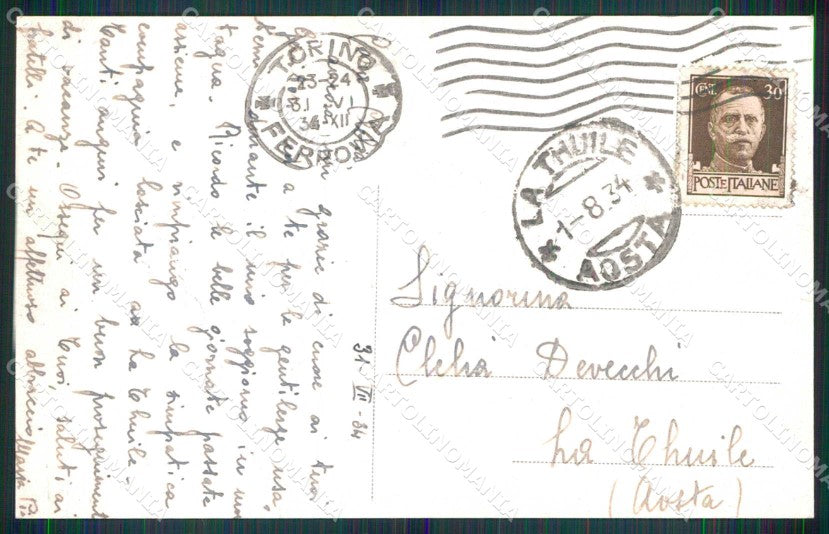 TORINO
23-24
31 VII
34 XII
FERROVIA
CENT. 30
POSTE ITALIANE
LA THUILE
1-8.34
AOSTA
Signorina
Clelia Devecchi
La Thuile
(Aosta)
31-VII-34
grazie di cuore ai tuoi
e a te per le gentilezze usa-
temi durante il mio soggiorno in mon
tagna. Ricordo le belle giornate passate
assieme, e rimpiango la simpatica
compagnia lasciata a La Thuile.
Tanti auguri per un buon proseguimento
di vacanze. Ossequi ai tuoi, saluti ai
fratelli. A te un affettuoso abbraccio
Maria
CARTOLINOMANIA